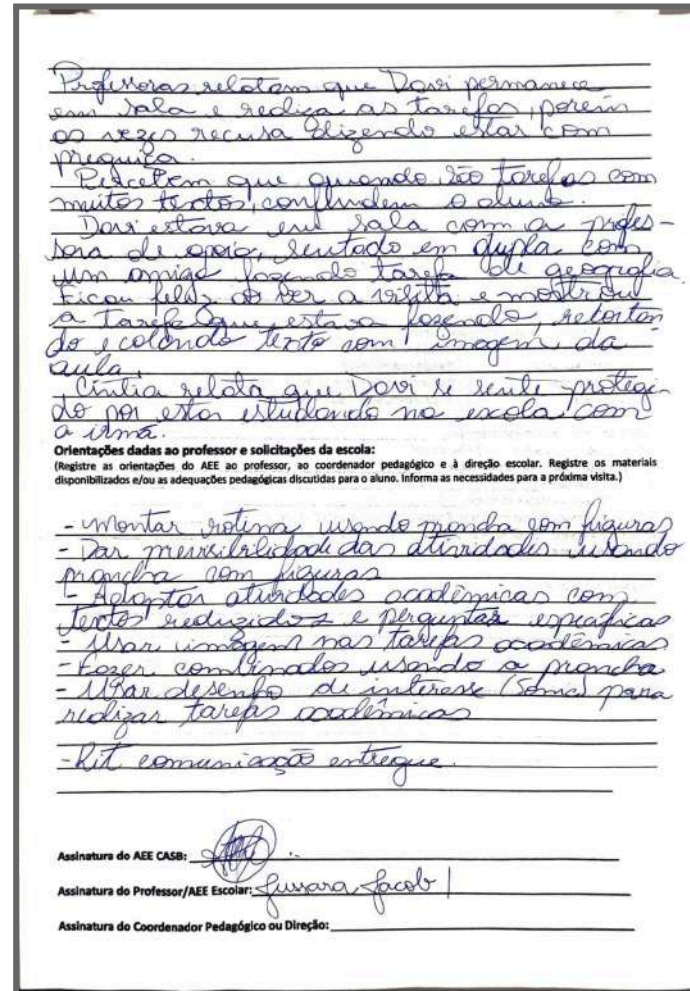 Professoras relatam que Davi permanece
em sala e realiza as tarefas, porém
as vezes recusa dizendo estar com
preguiça.
Percebem que quando são tarefas com
muitos textos, confundem o aluno.
Davi estava em sala com a profes-
sora de apoio, sentado em dupla com
um amigo fazendo tarefa de geografia.
Ficou feliz ao ver a visita e mostrou
a tarefa que estava fazendo, recortan
do e colando texto com imagem da
aula.
Cíntia relata que Davi se sente protegi-
do por estar estudando na escola com
a irmã.
Orientações dadas ao professor e solicitações da escola:
(Registre as orientações do AEE ao professor, ao coordenador pedagógico e à direção escolar. Registre os materiais
disponibilizados e/ou as adequações pedagógicas discutidas para o aluno. Informa as necessidades para a próxima visita.)
- Montar rotina usando prancha com figuras
- Dar previsibilidade das atividades usando
prancha com figuras
- Adaptar atividades acadêmicas com
textos reduzidos e perguntas específicas
- Usar imagem nas tarefas acadêmicas
- Fazer combinados usando a prancha
- Usar desenho de interesse (Sonic) para
realizar tarefas acadêmicas
- Kit comunicação entregue.
Assinatura do AEE CASB:
Assinatura do Professor/AEE Escolar: Jussara Jacob
Assinatura do Coordenador Pedagógico ou Direção: